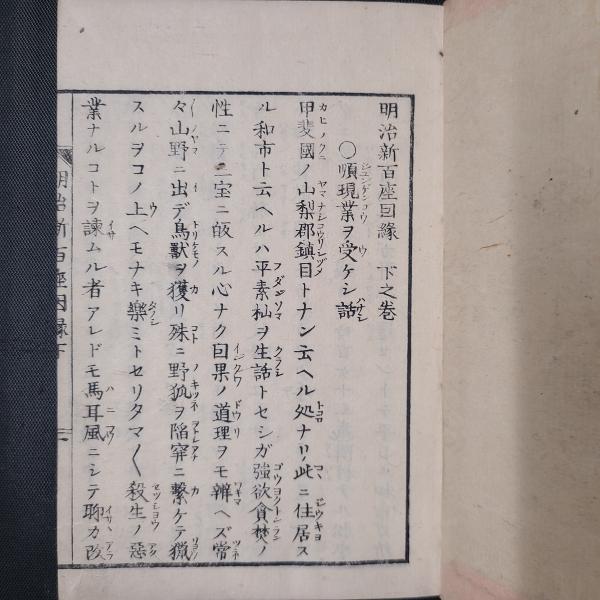 明治新百座因縁　下之巻
○順現業ヲ受ケシ話
甲斐國ノ山梨郡鎮目トナン云ヘル処ナリ此ニ住居ス
ル和市ト云ヘルハ平素杣ヲ生活トセシガ強欲貪婪ノ
性ニテ三宝ニ皈スル心ナク因果ノ道理ヲモ辨ヘズ常
々山野ニ出デ鳥獣ヲ獲リ殊ニ野狐ヲ陥穽ニ繋ケテ猟
スルヲコノ上ヘモナキ樂ミトセリタマ〱殺生ノ惡
業ナルコトヲ諫ムル者アレドモ馬耳風ニシテ聊カ改
明治新百座因縁下